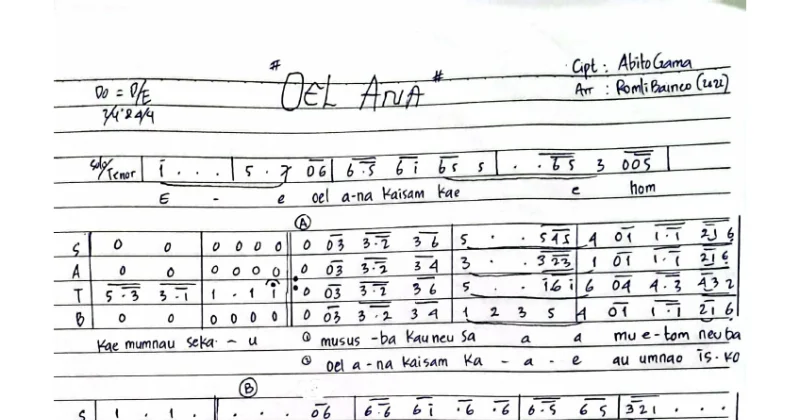 # OEL ANA #
Cipt : Abito Gama
Do = D/E
Arr : Romli Bainco (2022)
3/4 & 4/4
Solo/Tenor | i . . . | 5 . 7 06 | 6.5 6i 65 5 | . . 65 3 005 |
E - e oel a-na Kaisam Kae e hom
A
S | 0 0 | 0 0 0 0 | 0 03 3.2 36 | 5 . . 545 | 4 01 1.1 216
A | 0 0 | 0 0 0 0 | 0 03 3.2 34 | 3 . . 323 | 1 01 1.1 216
T | 5.3 3.1 | 1 . 1 i | 0 03 3.2 36 | 5 . . i6i | 6 04 4.3 432
B | 0 0 | 0 0 0 0 | 0 03 3.2 34 | 1 2 3 5 | 4 01 1.1 216
Kae mumnau seka - u ① musus -ba Kauneu Sa a a mu e-tom neuba
② oel a-na Kaisam Ka - a - e au umnao is-ko
B
S | 1 . 1 . | . . . 06 | 6.6 6i .6 .6 | 6.5 65 | 321 . . .